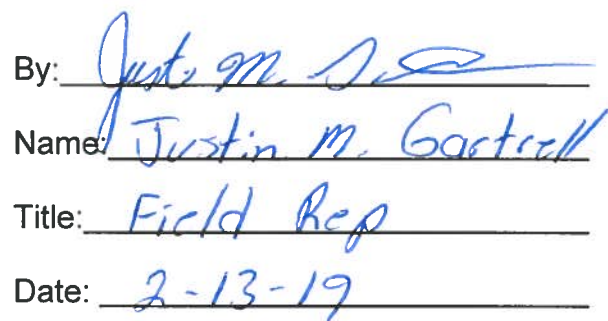 By: Just. M.
Name: Justin M. Gartrell
Title: Field Rep
Date: 2-13-19